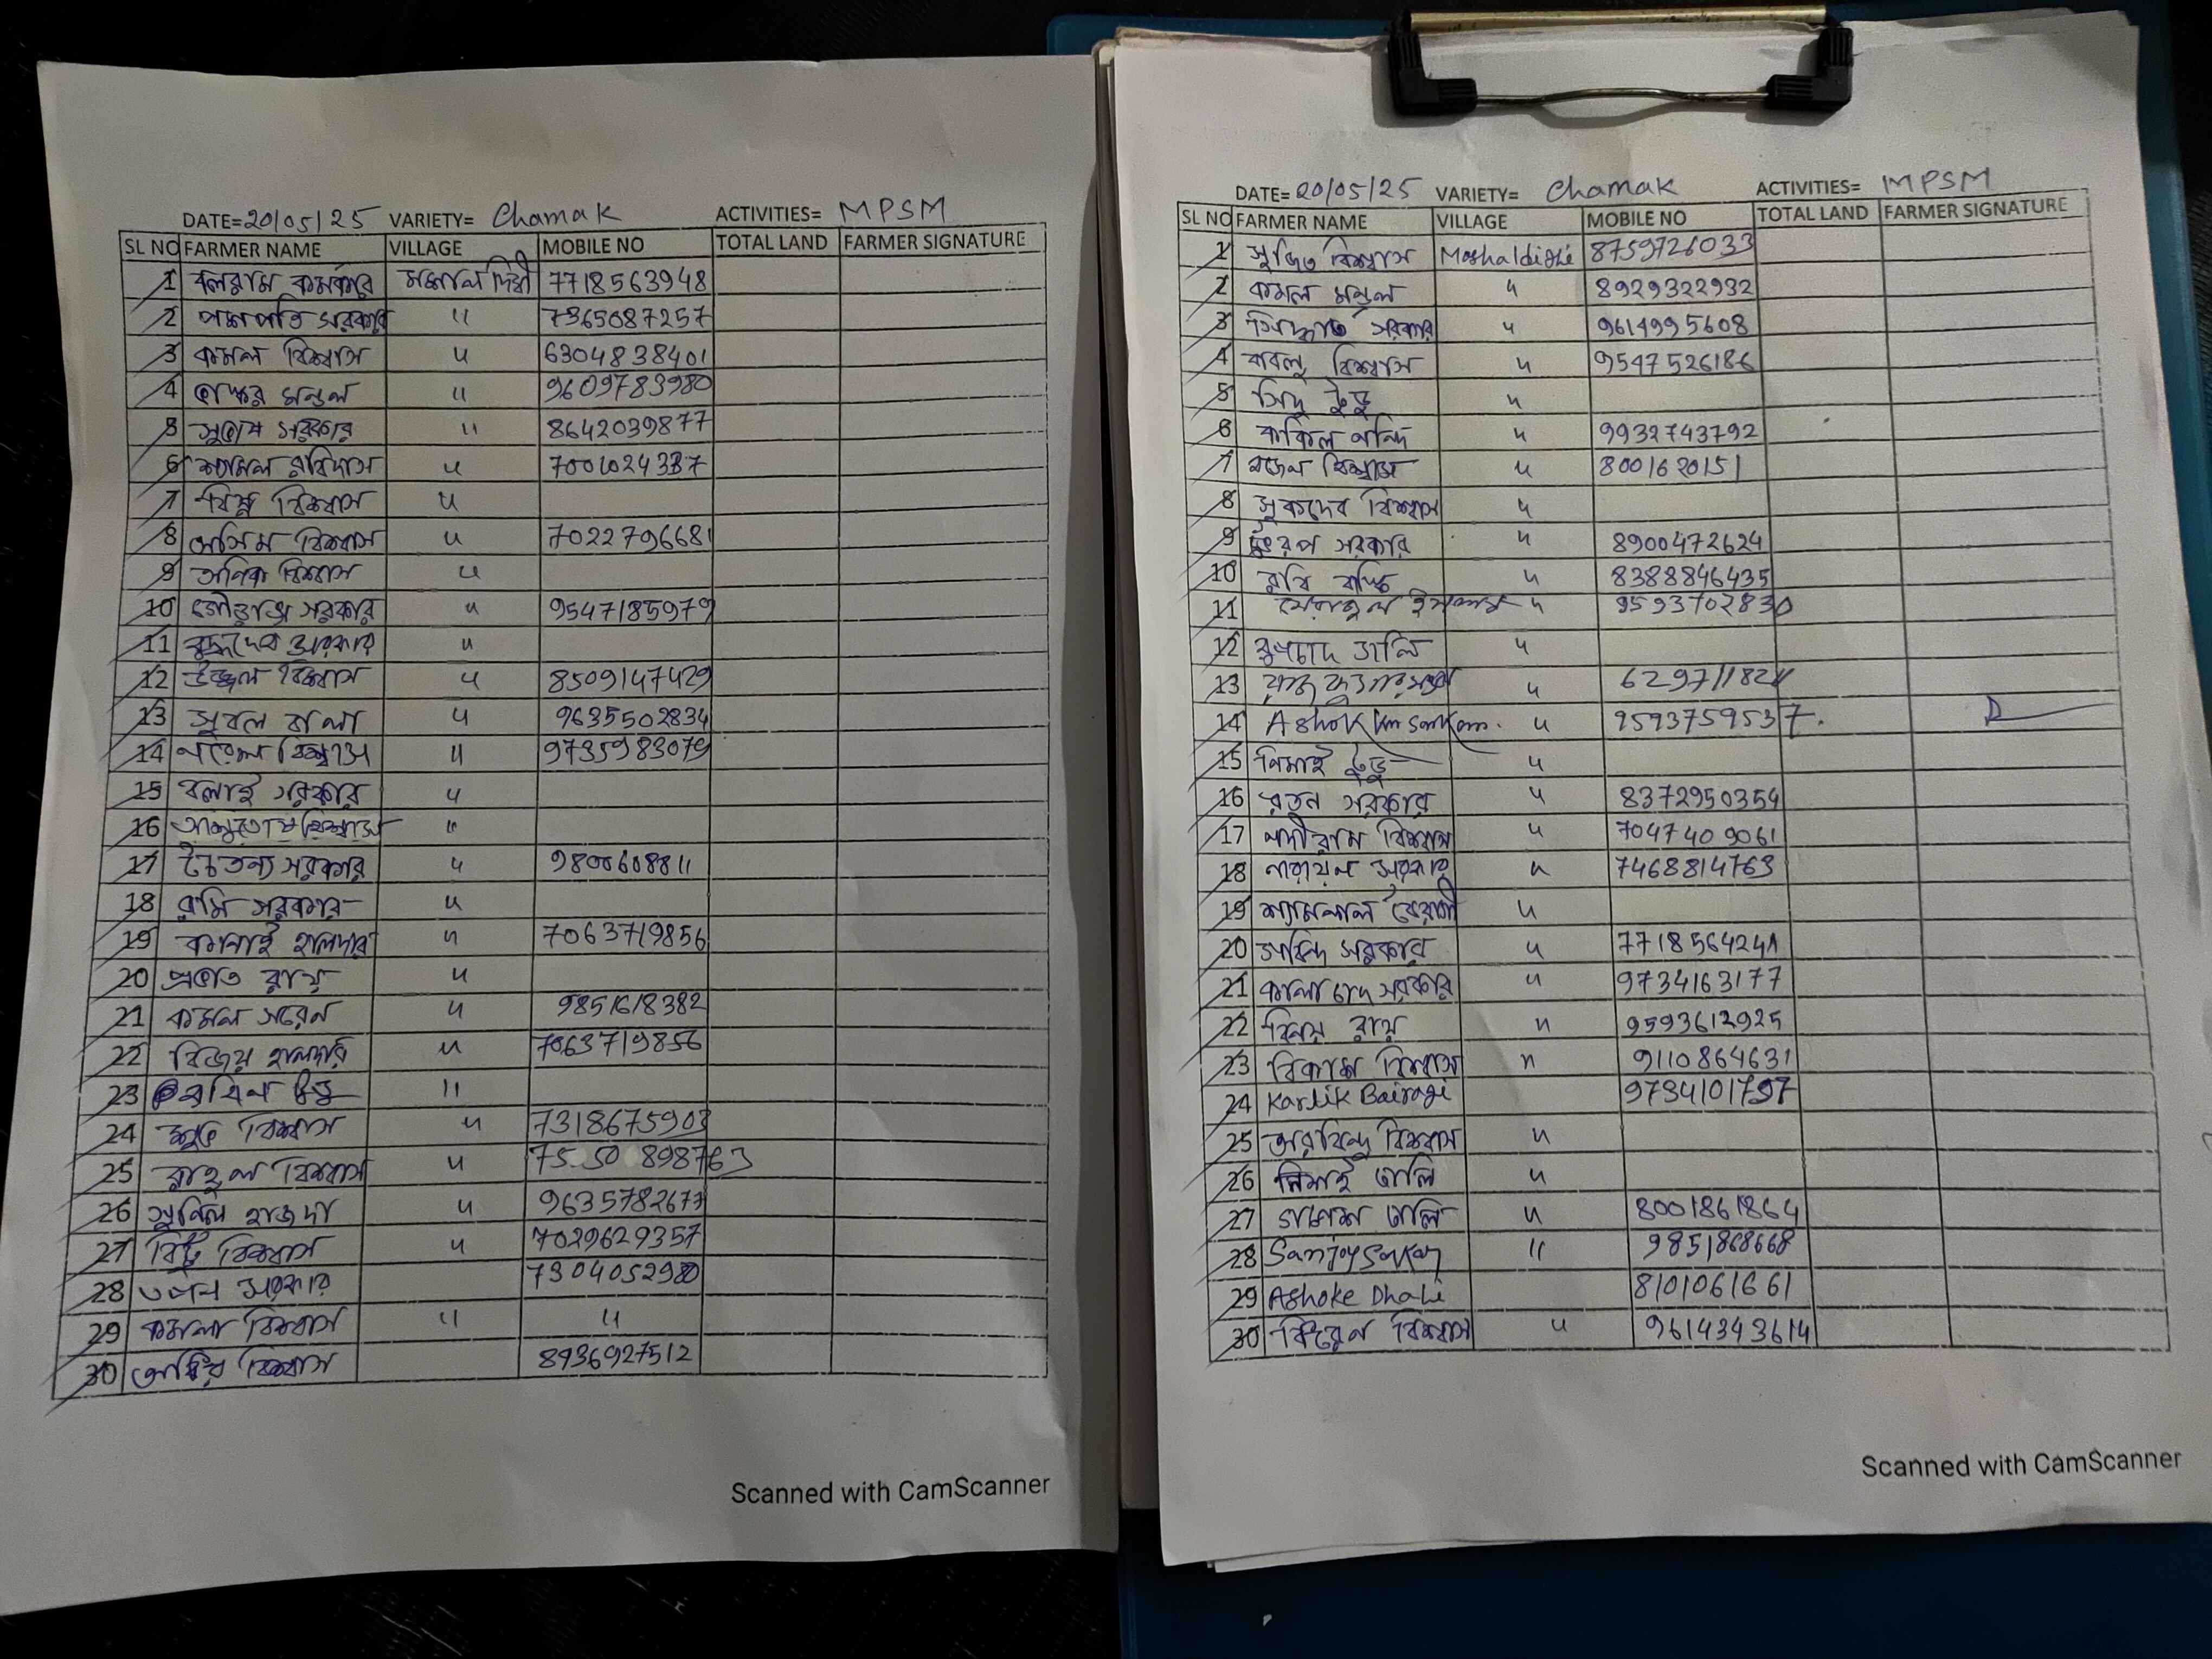 DATE=20/05/25 VARIETY= Chamak ACTIVITIES= MPSM
SL NO FARMER NAME VILLAGE MOBILE NO TOTAL LAND FARMER SIGNATURE
1 বলরাম কর্মকার মশাল দিঘী 7718563948
2 পশুপতি সরকার 11 7365087257
3 কমল বিশ্বাস " 6304838401
4 ভাস্কর মন্ডল 11 9609783980
5 সুভাষ সরকার 11 8642039877
6 শ্যামল রবিদাস "
7 বিষ্ণু বিশ্বাস "
8 অসিম বিশ্বাস " 7022796681
9 বিশ্বাস "
10 গৌরাঙ্গ সরকার " 9547185979
11 বুদ্ধদেব সরকার "
12 উজ্জ্বল বিশ্বাস " 8509147429
13 সুবল বালা " 9635502834
14 নরেন বিশ্বাস 11 9735983079
15 বলাই সরকার "
16 আশুতোষ বিশ্বাস "
17 চৈতন্য সরকার " 9800608811
18 রামি সরকার "
19 কানাই হালদার " 7063719856
20 প্রভাত রায় "
21 কমল সরেন " 9851618382
22 বিজয় হালদার " 7063719856
23 11
24 শুভ বিশ্বাস " 7318675903
25 রাহুল বিশ্বাস " 7550898763
26 সুনিল হাজদা " 9635782677
27 বিটু বিশ্বাস " 7029629357
28 তপন সরকার 7304052980
29 কমলা বিশ্বাস 11 11
30 বিশ্বাস 8936927512
Scanned with CamScanner
DATE=20/05/25 VARIETY= Chamak ACTIVITIES= MPSM
SL NO FARMER NAME VILLAGE MOBILE NO TOTAL LAND FARMER SIGNATURE
1 সুজিত বিশ্বাস Moshaldighi 8759726033
2 কমল মন্ডল " 8929322932
3 সিদ্ধার্ত সরকার " 9614995608
4 বাবলু বিশ্বাস " 9547526186
5 সিদু টুডু "
6 " 9932743792
7 বিশ্বাস " 8001620151
8 সুকদেব বিশ্বাস "
9 সরকার " 8900472624
10 রবি " 8388846435
11 ইসলাম " 9593702830
12 "
13 "
14 Ashok " 9593759537.
15 নিমাই টুডু "
16 রতন সরকার " 8372950354
17 নদীরাম বিশ্বাস " 7047409061
18 নারায়ন সরকার " 7468814763
19 শ্যামলাল বৈরাগী "
20 সরকার "
21 কালাচাদ সরকার " 9734163177
22 বিনয় রায় " 9593612925
23 বিকাশ বিশ্বাস " 9110864631
24 Kartik Bairagi 9734101797
25 অরবিন্দু বিশ্বাস "
26 নিমাই ঢালি "
27 ঢালি " 8001861864
28 Sanjoy Sarkar 11 9851868668
29 Ashoke Dhali 8101061661
30 বিশ্বাস " 9614343614
Scanned with CamScanner